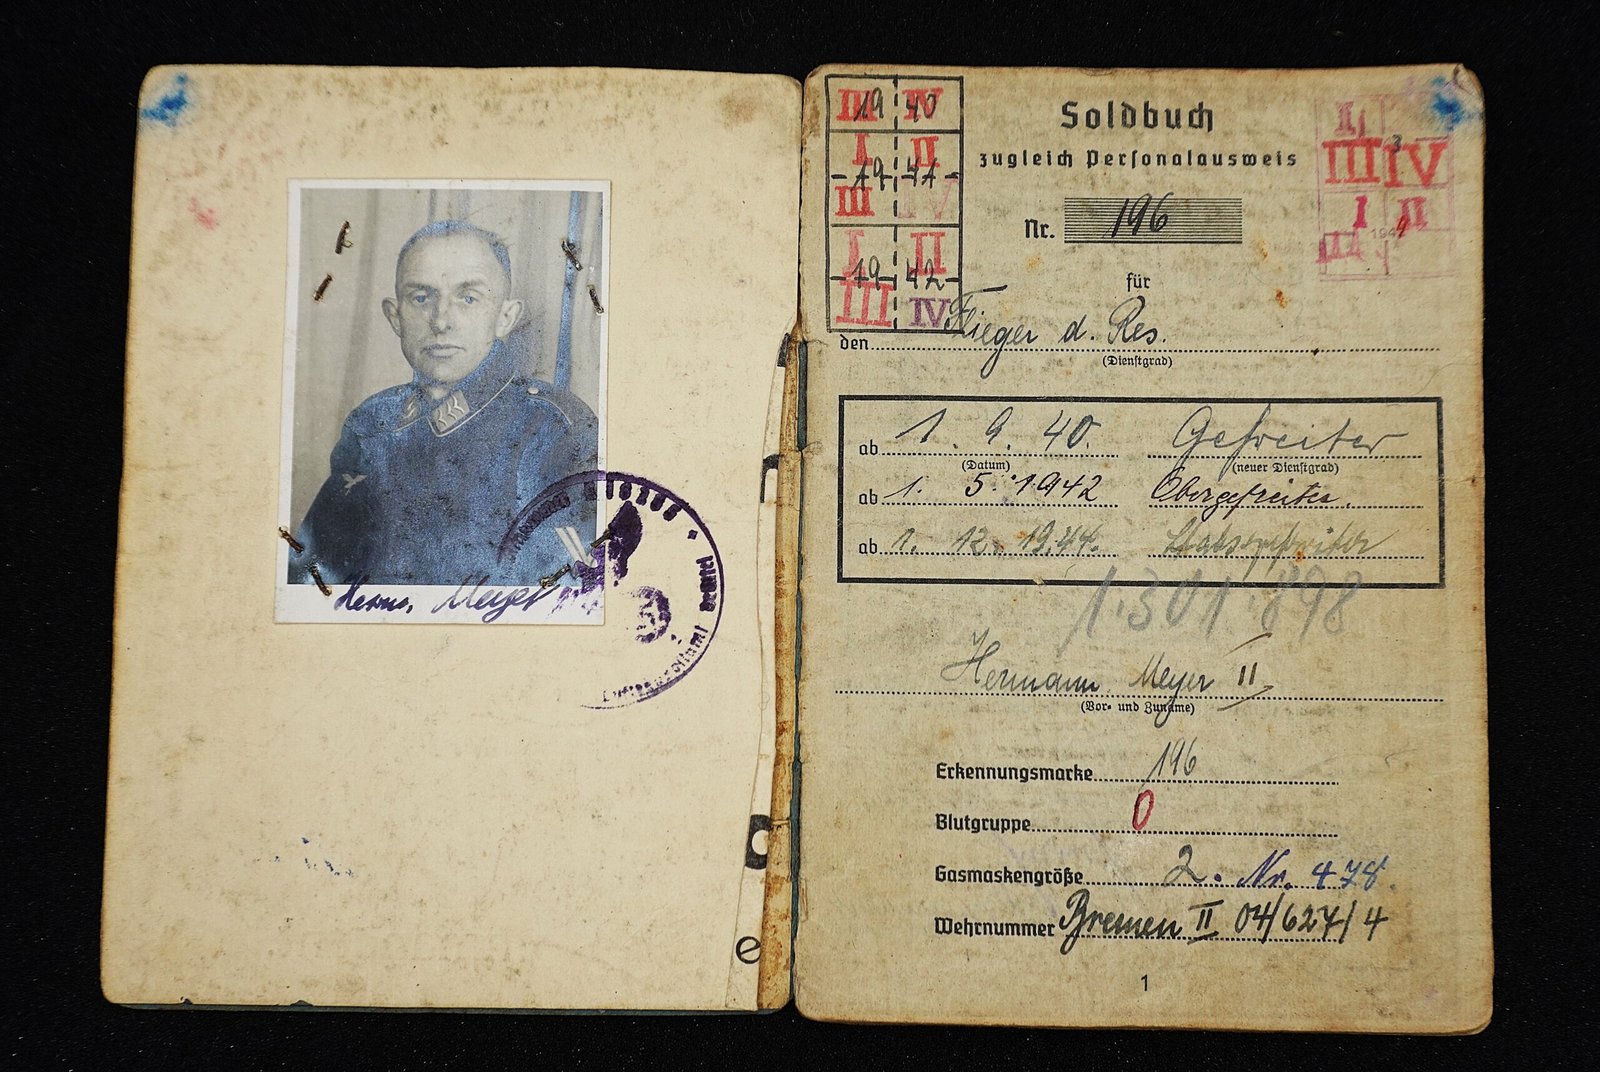 Herm. Meyer
III 19 40 IV
I II
19 41
III IV
I II
19 42
III IV
Soldbuch
zugleich Personalausweis
II
III IV
I II
III
Nr. 196
für
den Flieger d. Res.
(Dienstgrad)
ab 1. 9. 40. Gefreiter
(Datum) (neuer Dienstgrad)
ab 1. 5. 1942 Obergefreiter.
ab 1. 12. 1944. Stabsgefreiter
1.301.898
Hermann Meyer II
(Vor- und Zuname)
Erkennungsmarke 196
Blutgruppe 0
Gasmaskengröße 2. Nr. 478.
Wehrnummer Bremen II 04/627/4
1